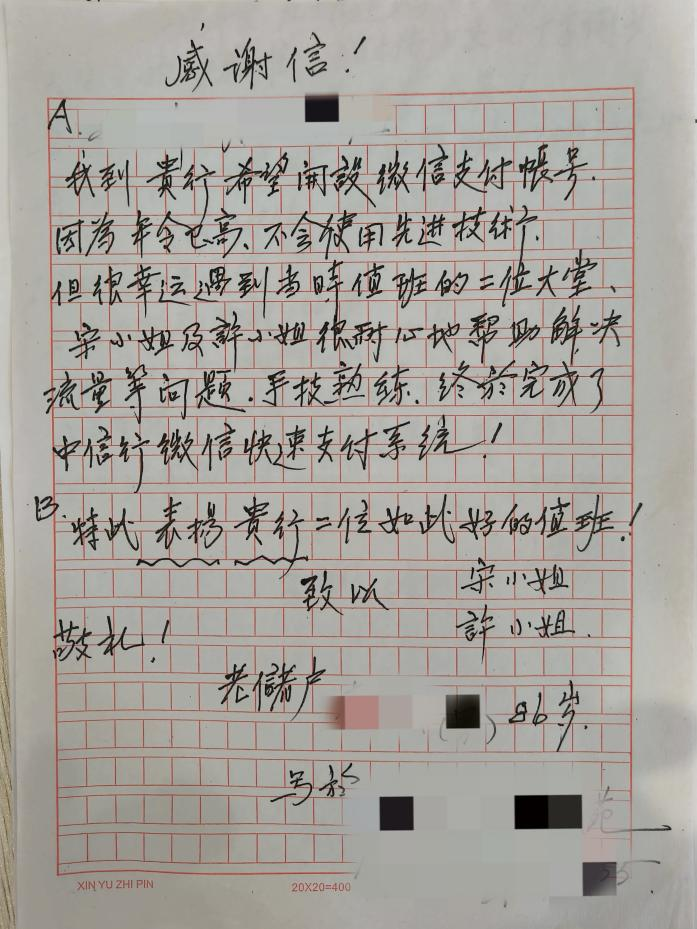 感谢信！
A.
我到贵行希望開設微信支付帳号.
因為年令已高、不会使用先进技術,
但很幸运遇到当時值班的二位大堂、
宋小姐及許小姐很耐心地帮助解决
流量等问题.手技熟练.终於完成了
中信行微信快速支付系统！
B.特此表揚貴行二位如此好的值班！
致以 宋小姐
許小姐.
敬礼！
老储户
86岁.
写於
苑
25
XIN YU ZHI PIN 20X20=400